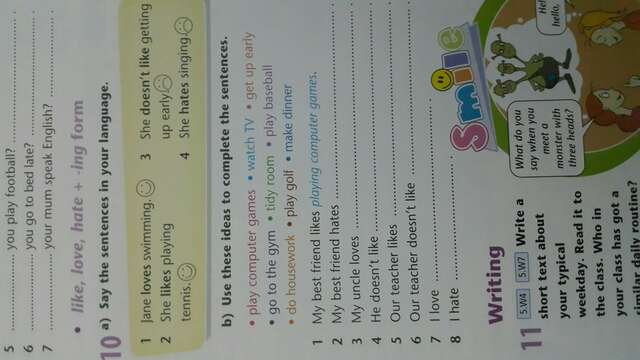 5 ............ you play football? ............
6 ............ you go to bed late? ............
7 ............ your mum speak English? ............
• like, love, hate + -ing form
10 a) Say the sentences in your language.
1 Jane loves swimming.
2 She likes playing
tennis.
3 She doesn't like getting
up early.
4 She hates singing.
b) Use these ideas to complete the sentences.
• play computer games • watch TV • get up early
• go to the gym • tidy room • play baseball
• do housework • play golf • make dinner
1 My best friend likes playing computer games.
2 My best friend hates ............
3 My uncle loves ............
4 He doesn't like ............
5 Our teacher likes ............
6 Our teacher doesn't like ............
7 I love ............
8 I hate ............
Writing
11 5.W4 5.W7 Write a
short text about
your typical
weekday. Read it to
the class. Who in
your class has got a
similar daily routine?
Smile
What do you
say when you
meet a
monster with
three heads?
hello,